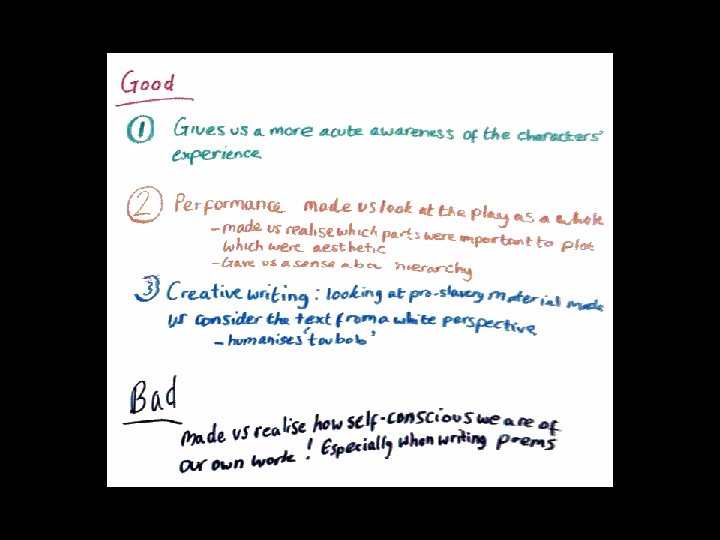 Good
① Gives us a more acute awareness of the characters'
experience
② Performance made us look at the play as a whole
- made us realise which parts were important to plot
which were aesthetic
- Gave us a sense hierarchy
③ Creative writing: looking at pro-slavery material made
us consider the text from a white perspective
- humanises 'toubob'
Bad
made us realise how self-conscious we are of
our own work! Especially when writing poems